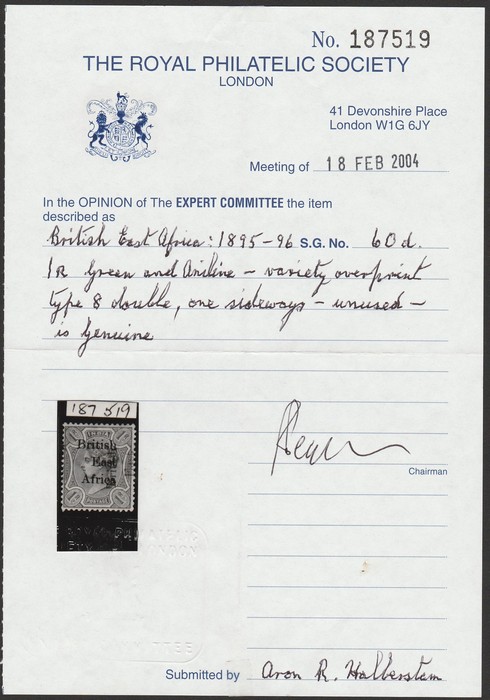 No. 187519
THE ROYAL PHILATELIC SOCIETY
LONDON
41 Devonshire Place
London W1G 6JY
Meeting of 18 FEB 2004
In the OPINION of The EXPERT COMMITTEE the item
described as
British East Africa: 1895-96 S.G. No. 60d.
1R Green and Aniline - variety overprint
type 8 double, one sideways - unused -
is genuine
187 519
INDIA
British
East
Africa
POSTAGE
Chairman
LONDON
COMMITTEE
Submitted by Aron R. Halberstam